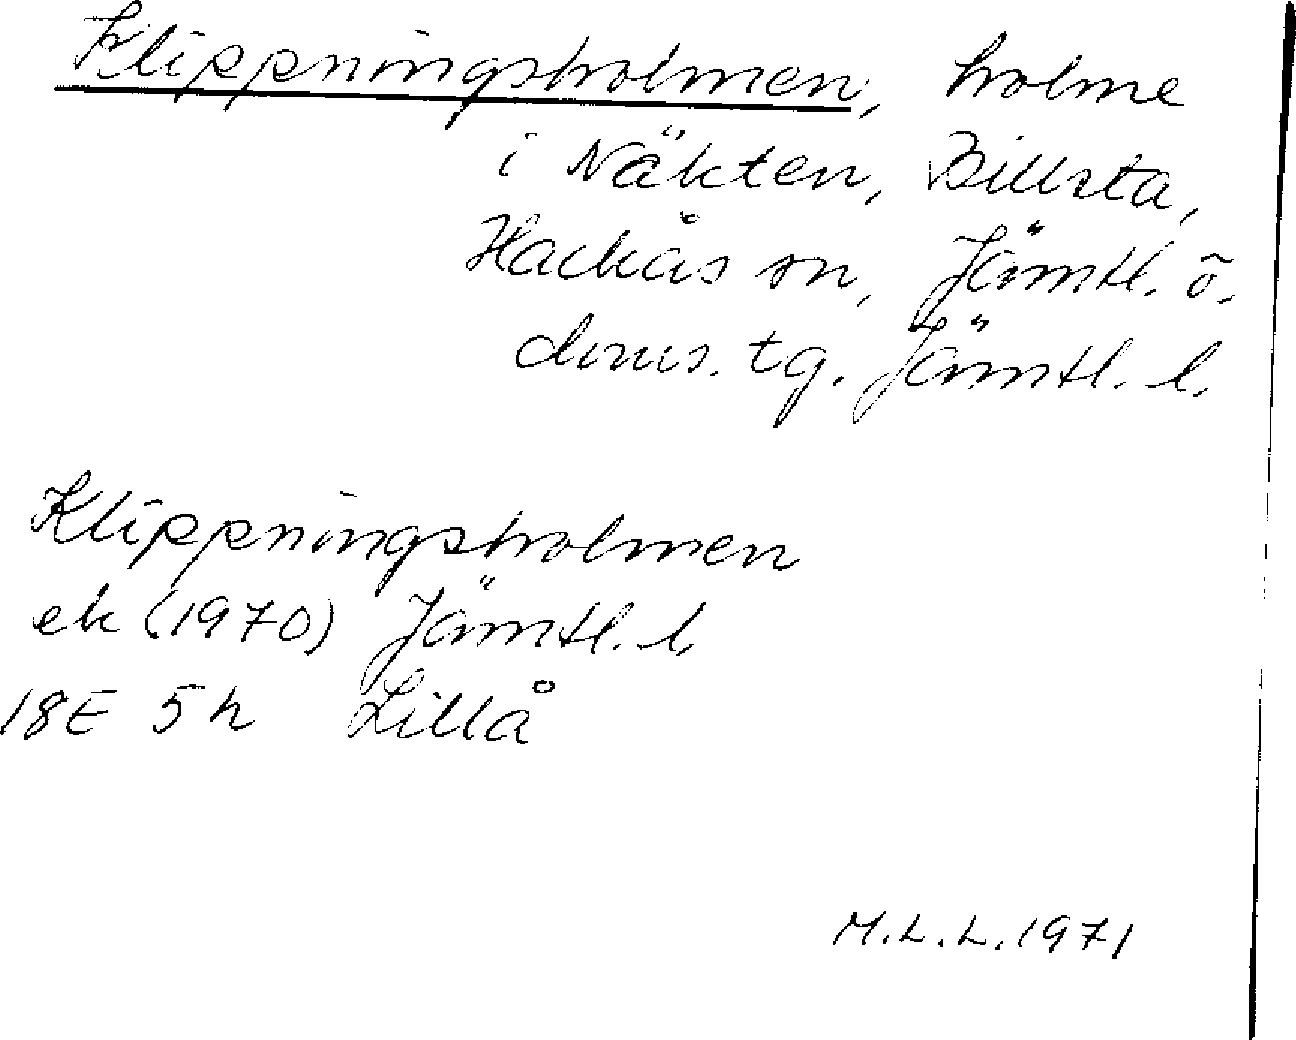 Klippningsholmen, holme
i Näkten, Billsta,
Hackås sn, Jämtl. ö.
doms. tg. Jämtl. l.
Klippningsholmen
ek (1970) Jämtl. l.
18E 5h Lillå
M.L.L. 1971